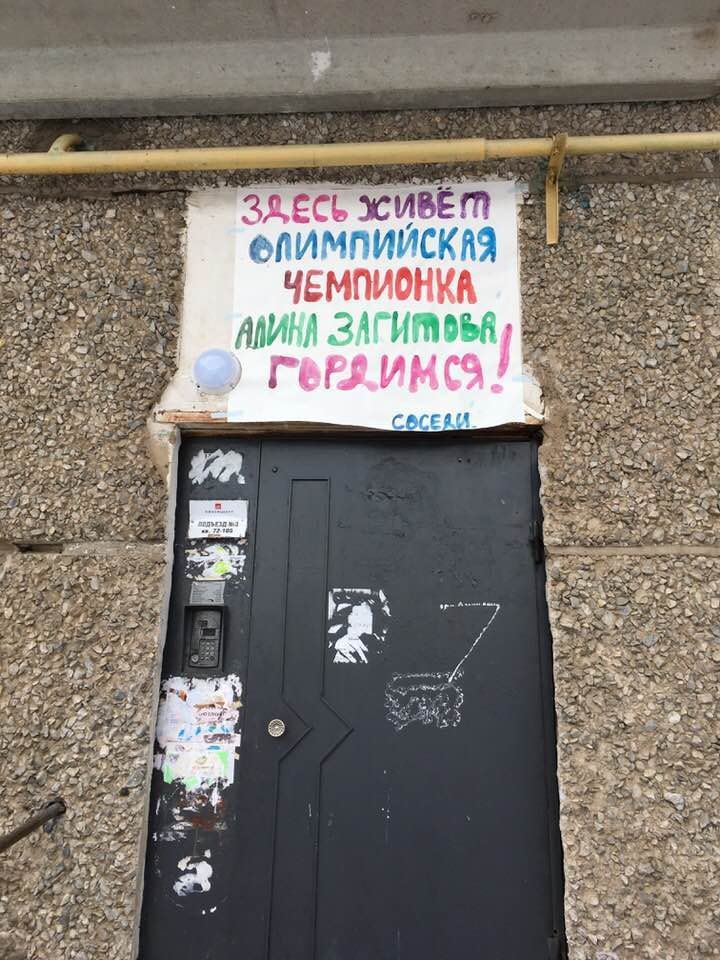 ЗДЕСЬ ЖИВЁТ
ОЛИМПИЙСКАЯ
ЧЕМПИОНКА
АЛИНА ЗАГИТОВА
ГОРДИМСЯ!
СОСЕДИ.
ПОДЪЕЗД №3
кв. 72-106